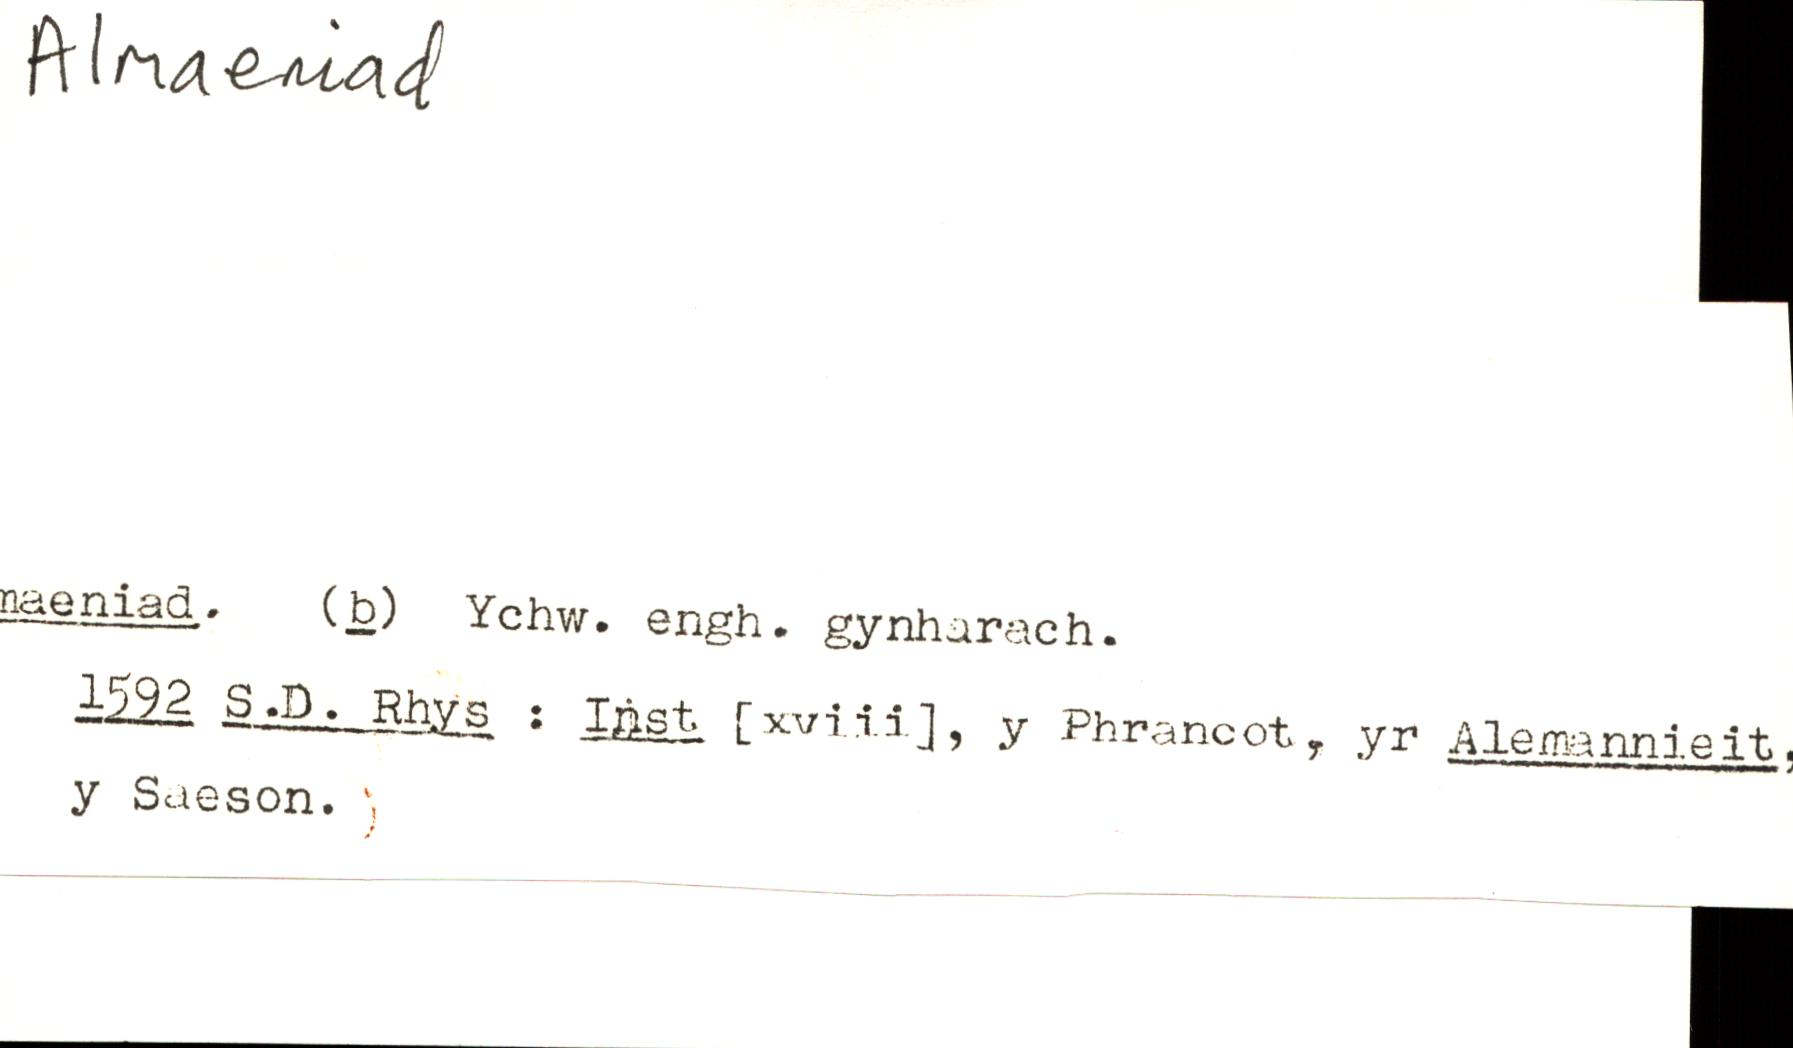 Almaeniad
maeniad. (b) Ychw. engh. gynharach.
1592 S.D. Rhys : Inst [xviii], y Phrancot, yr Alemannieit,
y Saeson. ;